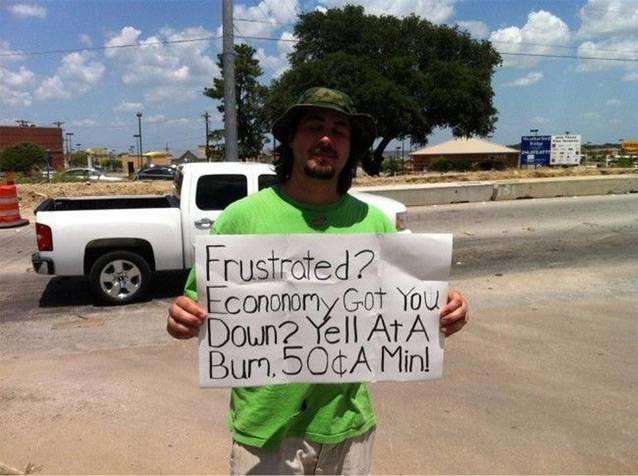 Frustrated?
Econonomy Got You
Down? Yell At A
Bum. 50¢ A Min!